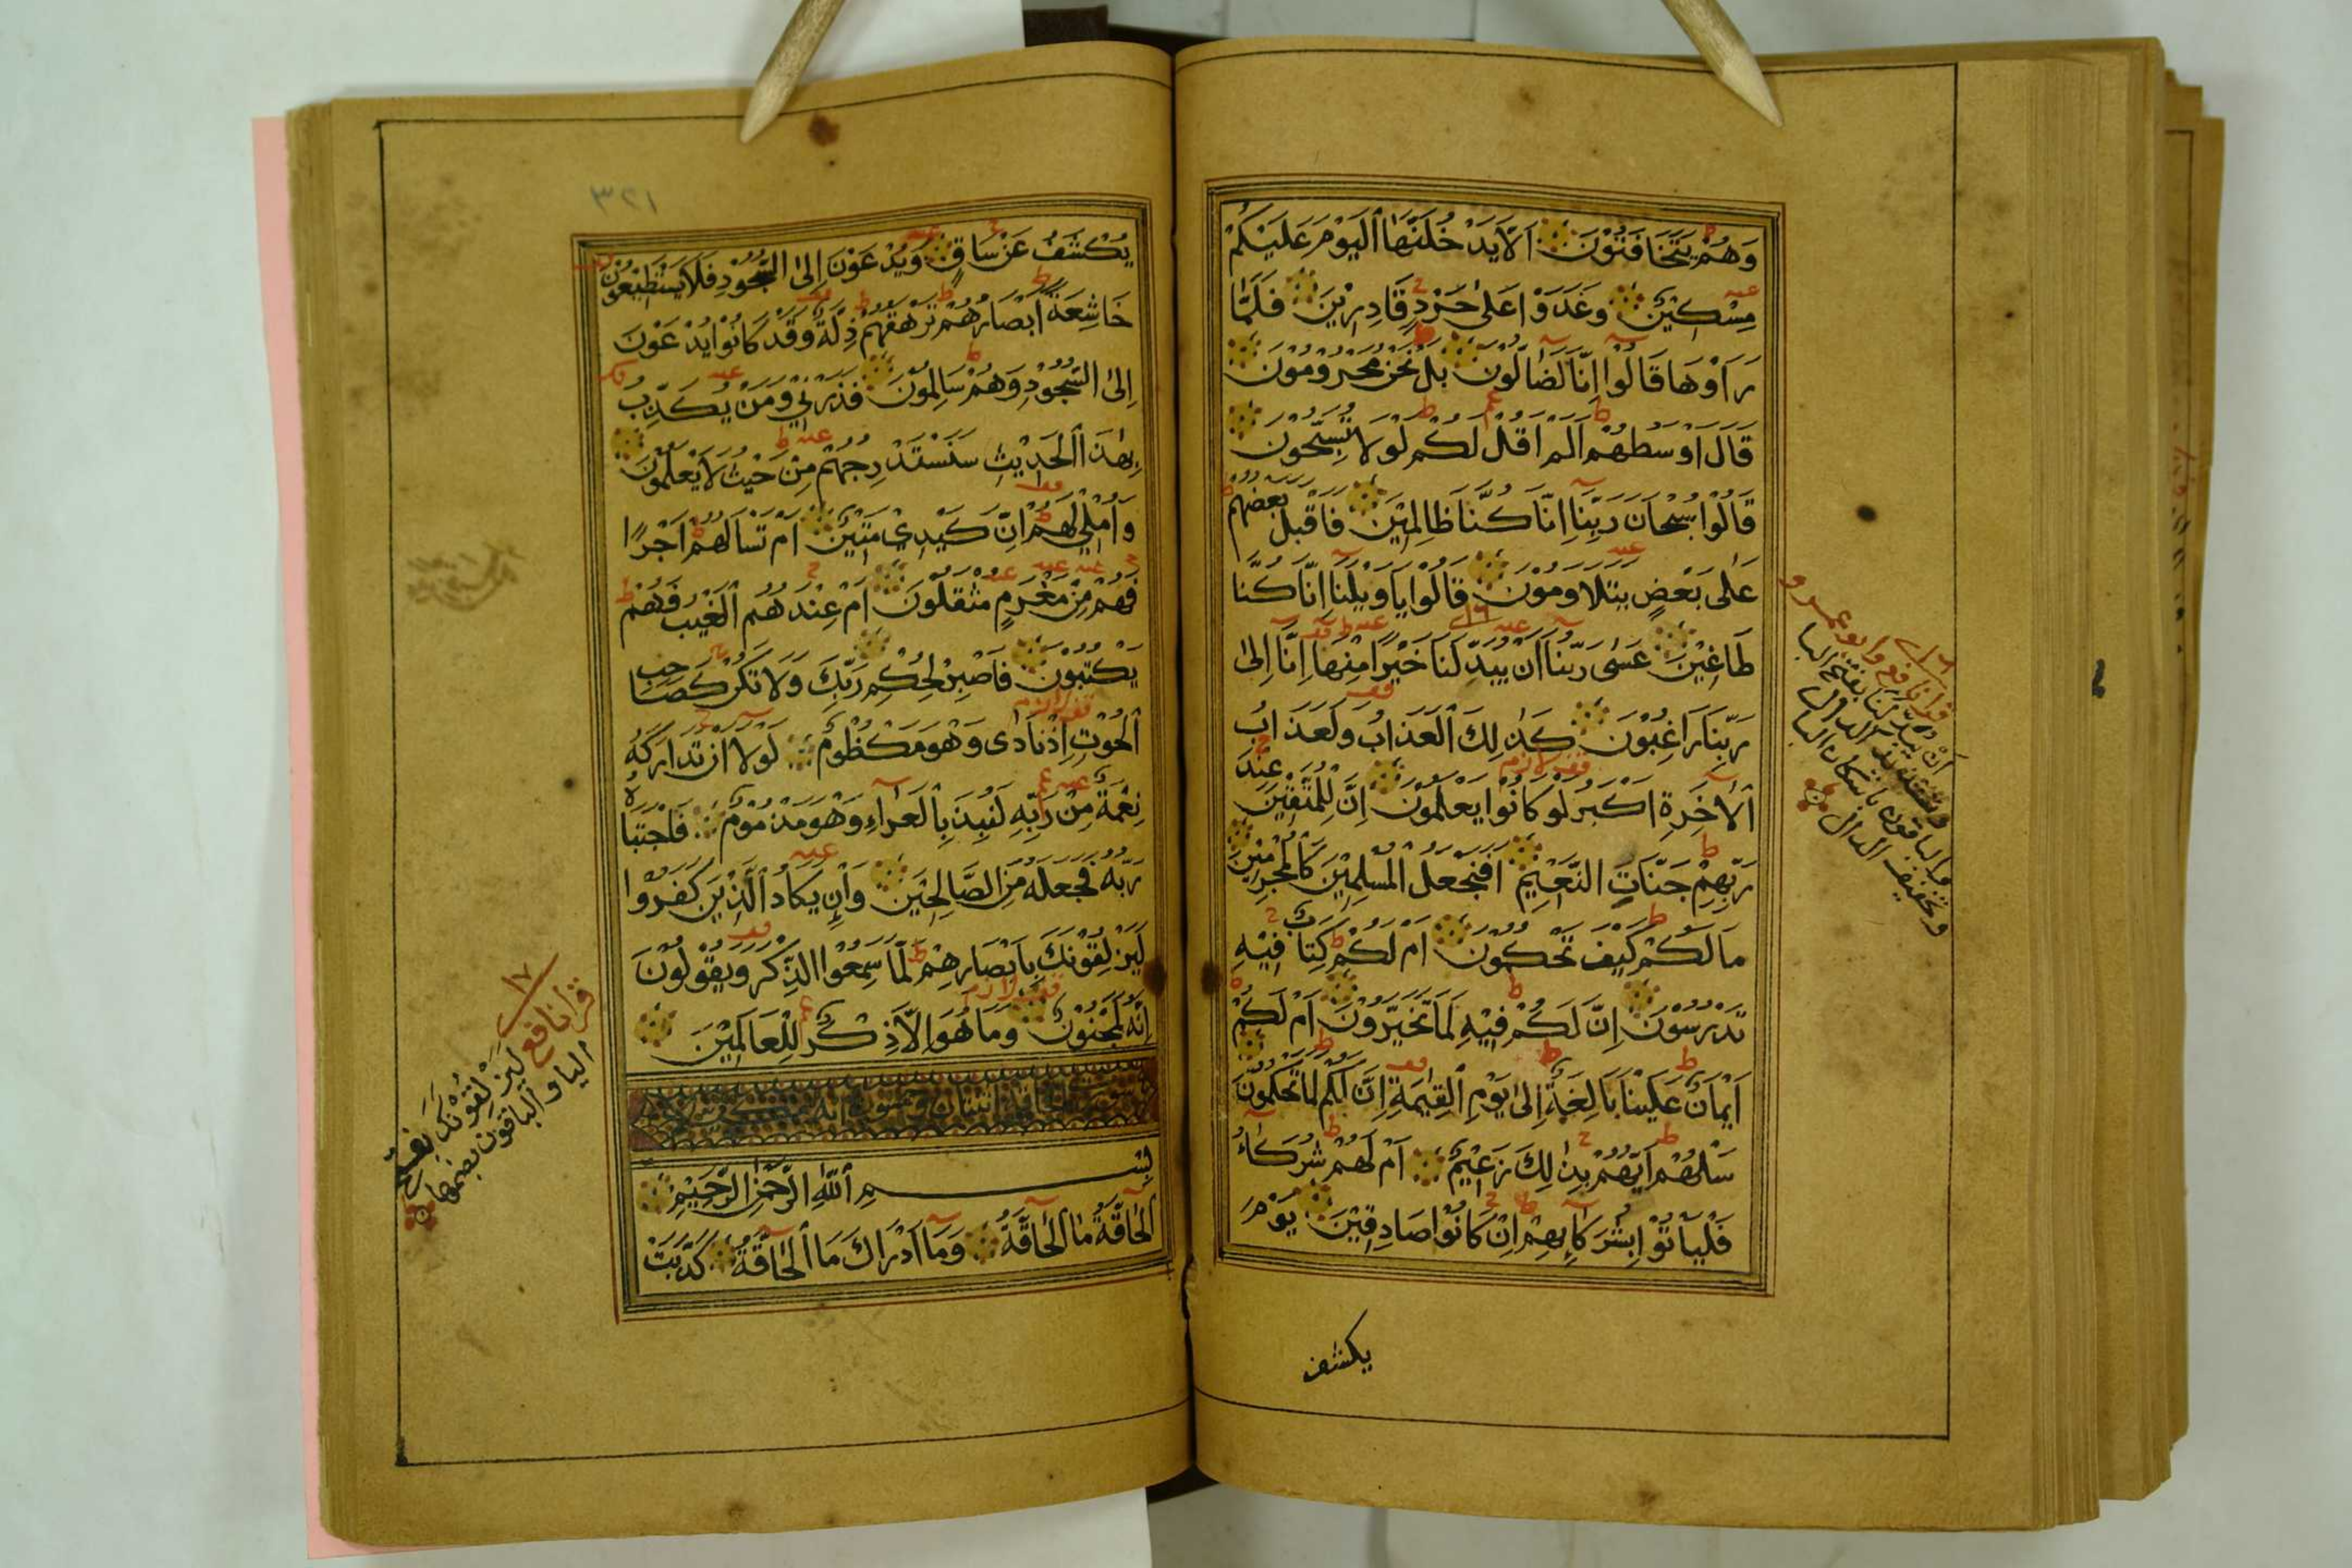 وَهُمْ يَتَخَافَتُوْنَ اَلَّا يَدْخُلَنَّهَا الْيَوْمَ عَلَيْكُمْ
مِسْكِيْنٌ وَغَدَوْا عَلٰى حَرْدٍ قَادِرِيْنَ فَلَمَّا
رَاَوْهَا قَالُوْا اِنَّا لَضَالُّوْنَ بَلْ نَحْنُ مَحْرُوْمُوْنَ
قَالَ اَوْسَطُهُمْ اَلَمْ اَقُلْ لَكُمْ لَوْلَا تُسَبِّحُوْنَ
قَالُوْا سُبْحَانَ رَبِّنَا اِنَّا كُنَّا ظَالِمِيْنَ فَاَقْبَلَ بَعْضُهُمْ
عَلٰى بَعْضٍ يَتَلَاوَمُوْنَ قَالُوْا يَاوَيْلَنَا اِنَّا كُنَّا
طَاغِيْنَ عَسٰى رَبُّنَا اَنْ يُبْدِلَنَا خَيْرًا مِنْهَا اِنَّا اِلٰى
رَبِّنَا رَاغِبُوْنَ كَذٰلِكَ الْعَذَابُ وَلَعَذَابُ
الْاٰخِرَةِ اَكْبَرُ لَوْ كَانُوْا يَعْلَمُوْنَ اِنَّ لِلْمُتَّقِيْنَ عِنْدَ
رَبِّهِمْ جَنَّاتِ النَّعِيْمِ اَفَنَجْعَلُ الْمُسْلِمِيْنَ كَالْمُجْرِمِيْنَ
مَا لَكُمْ كَيْفَ تَحْكُمُوْنَ اَمْ لَكُمْ كِتَابٌ فِيْهِ
تَدْرُسُوْنَ اِنَّ لَكُمْ فِيْهِ لَمَا تَخَيَّرُوْنَ اَمْ لَكُمْ
اَيْمَانٌ عَلَيْنَا بَالِغَةٌ اِلٰى يَوْمِ الْقِيٰمَةِ اِنَّ لَكُمْ لَمَا تَحْكُمُوْنَ
سَلْهُمْ اَيُّهُمْ بِذٰلِكَ زَعِيْمٌ اَمْ لَهُمْ شُرَكَاءُ
فَلْيَاْتُوْا بِشُرَكَائِهِمْ اِنْ كَانُوْا صَادِقِيْنَ يَوْمَ
يكشف
١٦
قرا نافع وابو عمرو
ان يبدلنا بفتح البا
وتشديد الدال
والباقون باسكان البا
وتخفيف الدال
٣٢١
يُكْشَفُ عَنْ سَاقٍ وَيُدْعَوْنَ اِلَى السُّجُوْدِ فَلَا يَسْتَطِيْعُوْنَ
خَاشِعَةً اَبْصَارُهُمْ تَرْهَقُهُمْ ذِلَّةٌ وَقَدْ كَانُوْا يُدْعَوْنَ
اِلَى السُّجُوْدِ وَهُمْ سَالِمُوْنَ فَذَرْنِيْ وَمَنْ يُكَذِّبُ
بِهٰذَا الْحَدِيْثِ سَنَسْتَدْرِجُهُمْ مِنْ حَيْثُ لَا يَعْلَمُوْنَ
وَاُمْلِيْ لَهُمْ اِنَّ كَيْدِيْ مَتِيْنٌ اَمْ تَسْاَلُهُمْ اَجْرًا
فَهُمْ مِنْ مَغْرَمٍ مُثْقَلُوْنَ اَمْ عِنْدَهُمُ الْغَيْبُ فَهُمْ
يَكْتُبُوْنَ فَاصْبِرْ لِحُكْمِ رَبِّكَ وَلَا تَكُنْ كَصَاحِبِ
الْحُوْتِ اِذْ نَادٰى وَهُوَ مَكْظُوْمٌ لَوْلَا اَنْ تَدَارَكَهُ
نِعْمَةٌ مِنْ رَبِّهِ لَنُبِذَ بِالْعَرَاءِ وَهُوَ مَذْمُوْمٌ فَاجْتَبَاهُ
رَبُّهُ فَجَعَلَهُ مِنَ الصَّالِحِيْنَ وَاِنْ يَكَادُ الَّذِيْنَ كَفَرُوْا
لَيُزْلِقُوْنَكَ بِاَبْصَارِهِمْ لَمَّا سَمِعُوا الذِّكْرَ وَيَقُوْلُوْنَ
اِنَّهُ لَمَجْنُوْنٌ وَمَا هُوَ اِلَّا ذِكْرٌ لِلْعَالَمِيْنَ
بِسْمِ اللّٰهِ الرَّحْمٰنِ الرَّحِيْمِ
اَلْحَاقَّةُ مَا الْحَاقَّةُ وَمَا اَدْرَاكَ مَا الْحَاقَّةُ كَذَّبَتْ
١٧
قرا نافع
ليزلقونك بفتح
اليا والباقون بضمها